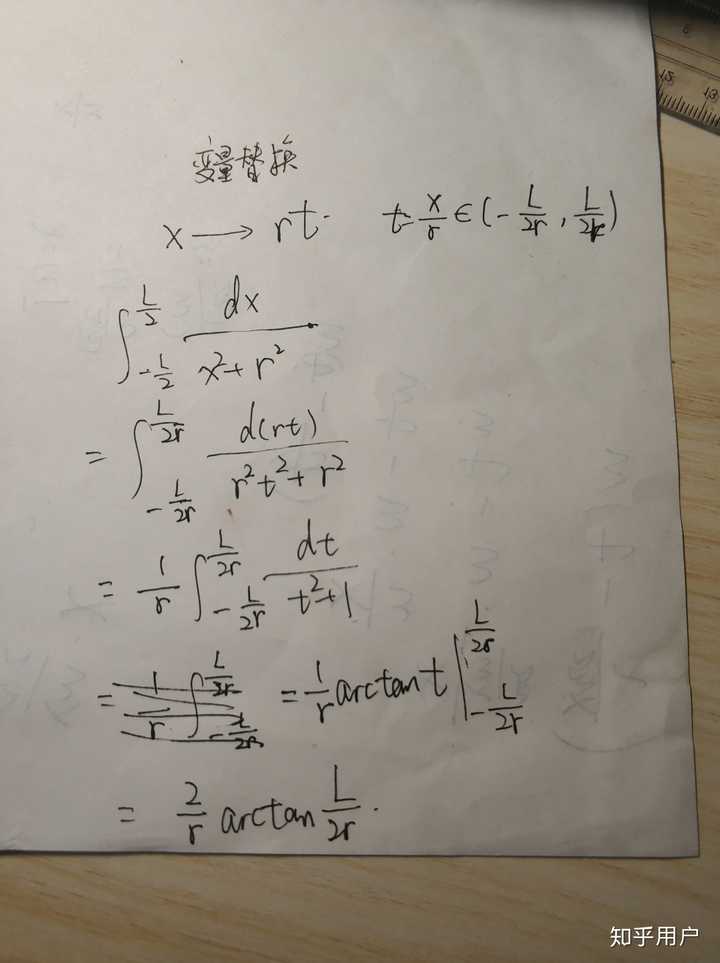 变量替换
x ⟶ rt. t = x/r ∈ (-L/2r, L/2r)
∫_{-L/2}^{L/2} dx/(x²+r²)
= ∫_{-L/2r}^{L/2r} d(rt)/(r²t²+r²)
= 1/r ∫_{-L/2r}^{L/2r} dt/(t²+1)
= 1/r ∫_{-L/2r}^{L/2r} = 1/r arctan t |_{-L/2r}^{L/2r}
= 2/r arctan L/2r.
15 13
知乎用户